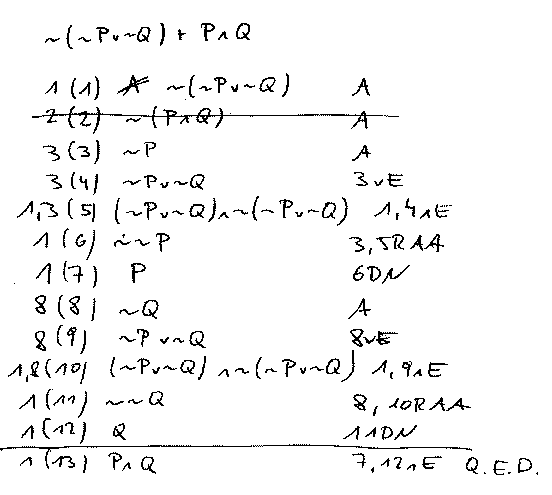 ~(~P∨~Q) ⊢ P∧Q
1 (1) ~(~P∨~Q) A
2 (2) ~(P∧Q) A
3 (3) ~P A
3 (4) ~P∨~Q 3∨E
1,3 (5) (~P∨~Q)∧~(~P∨~Q) 1,4∧E
1 (6) ~~P 3,5RAA
1 (7) P 6DN
8 (8) ~Q A
8 (9) ~P∨~Q 8∨E
1,8 (10) (~P∨~Q)∧~(~P∨~Q) 1,9∧E
1 (11) ~~Q 8,10RAA
1 (12) Q 11DN
1 (13) P∧Q 7,12∧E Q.E.D.